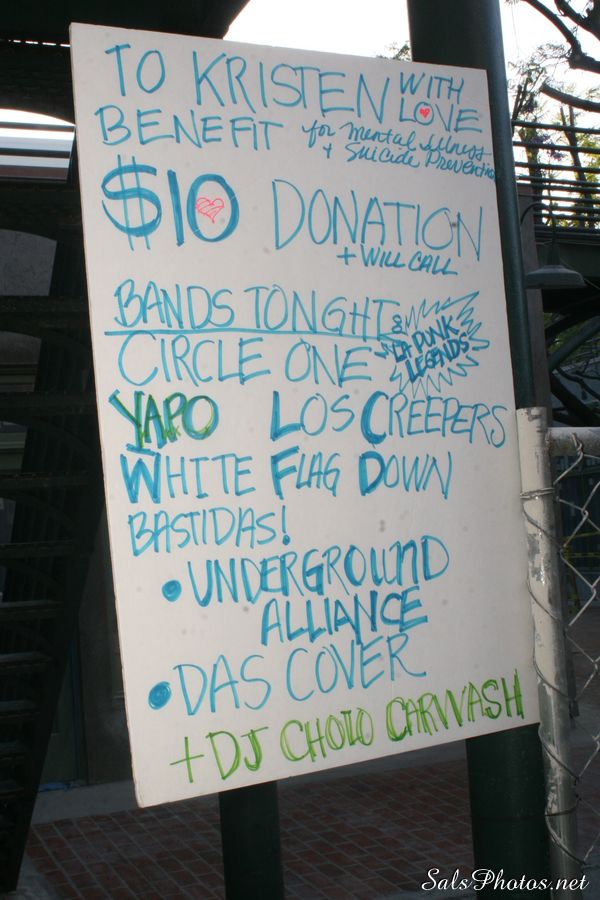 TO KRISTEN WITH LOVE
BENEFIT for Mental Illness
+ Suicide Prevention
$10 DONATION
+ WILL CALL
BANDS TONGHT &
CIRCLE ONE LA PUNK LEGENDS
YAPO LOS CREEPERS
WHITE FLAG DOWN
BASTIDAS!
• UNDERGROUND
ALLIANCE
• DAS COVER
+ DJ CHOLO CARWASH
SalsPhotos.net